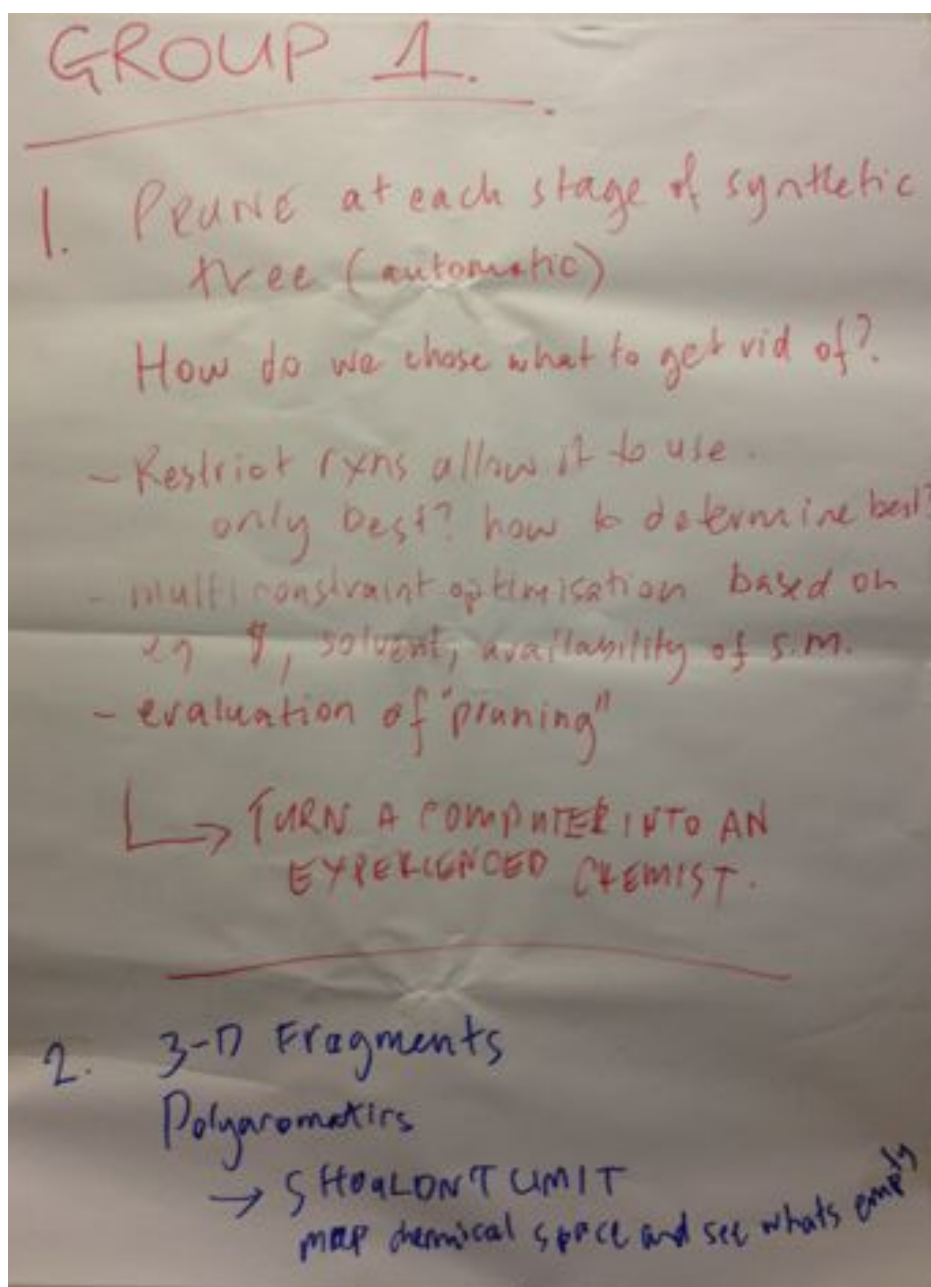 GROUP 1.
1. PRUNE at each stage of synthetic
tree (automatic)
How do we chose what to get rid of?
- Restrict rxns allow it to use.
only best? how to determine best?
- multi constraint optimisation based on
eg $, solvent, availability of s.m.
- evaluation of "pruning"
→ TURN A COMPUTER INTO AN
EXPERIENCED CHEMIST.
2. 3-D Fragments
Polyaromatics
→ SHOULDNT LIMIT
map chemical space and see whats empty